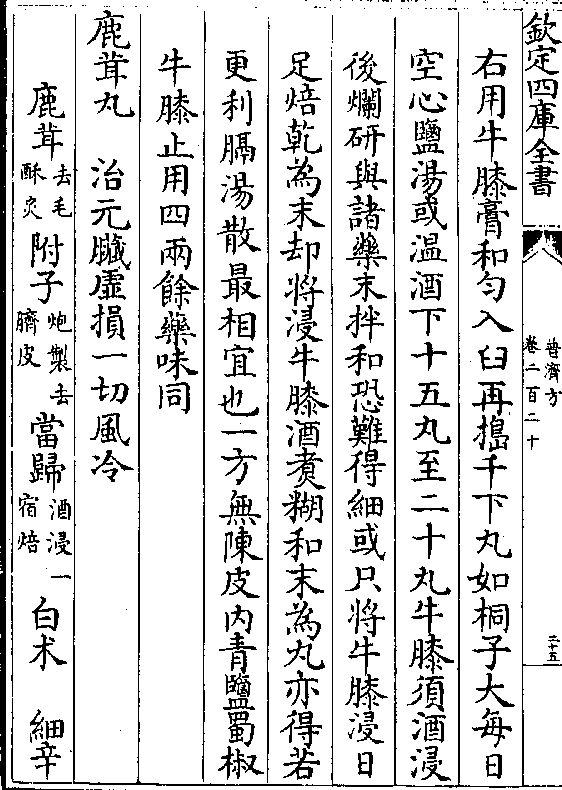 欽定四庫全書
普濟方
卷二百二十
二十五
右用牛膝膏和匀入臼再搗千下丸如桐子大每日
空心鹽湯或温酒下十五丸至二十丸牛膝須酒浸
後爛研與諸藥末拌和恐難得細或只將牛膝浸日
足焙乾為末却將浸牛膝酒煑糊和末為丸亦得若
更利膈湯散最相宜也一方無陳皮内青鹽蜀椒
牛膝止用四兩餘藥味同
鹿茸丸　治元臓虛損一切風冷
鹿茸去毛酥炙　附子炮製去臍皮　當歸酒浸一宿焙　白朮　細辛